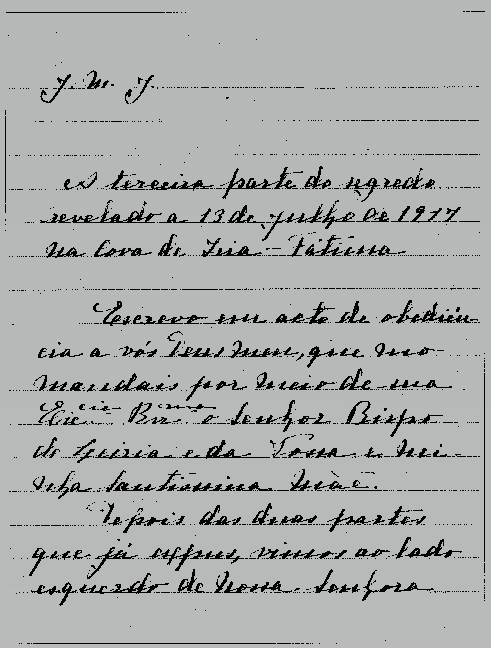 J. M. J.
A terceira parte do segredo
revelado a 13 de julho de 1917
na Cova de Iria - Fátima
Escrevo em acto de obediên
cia a vós Deus meu, que mo
mandais por meio de sua
Ex.cia Rev.ma o Senhor Bispo
de Leiria e da Vossa e mi-
nha Santissima Mãe.
Depois das duas partes
que já expus, vimos ao lado
esquerdo de Nossa Senhora